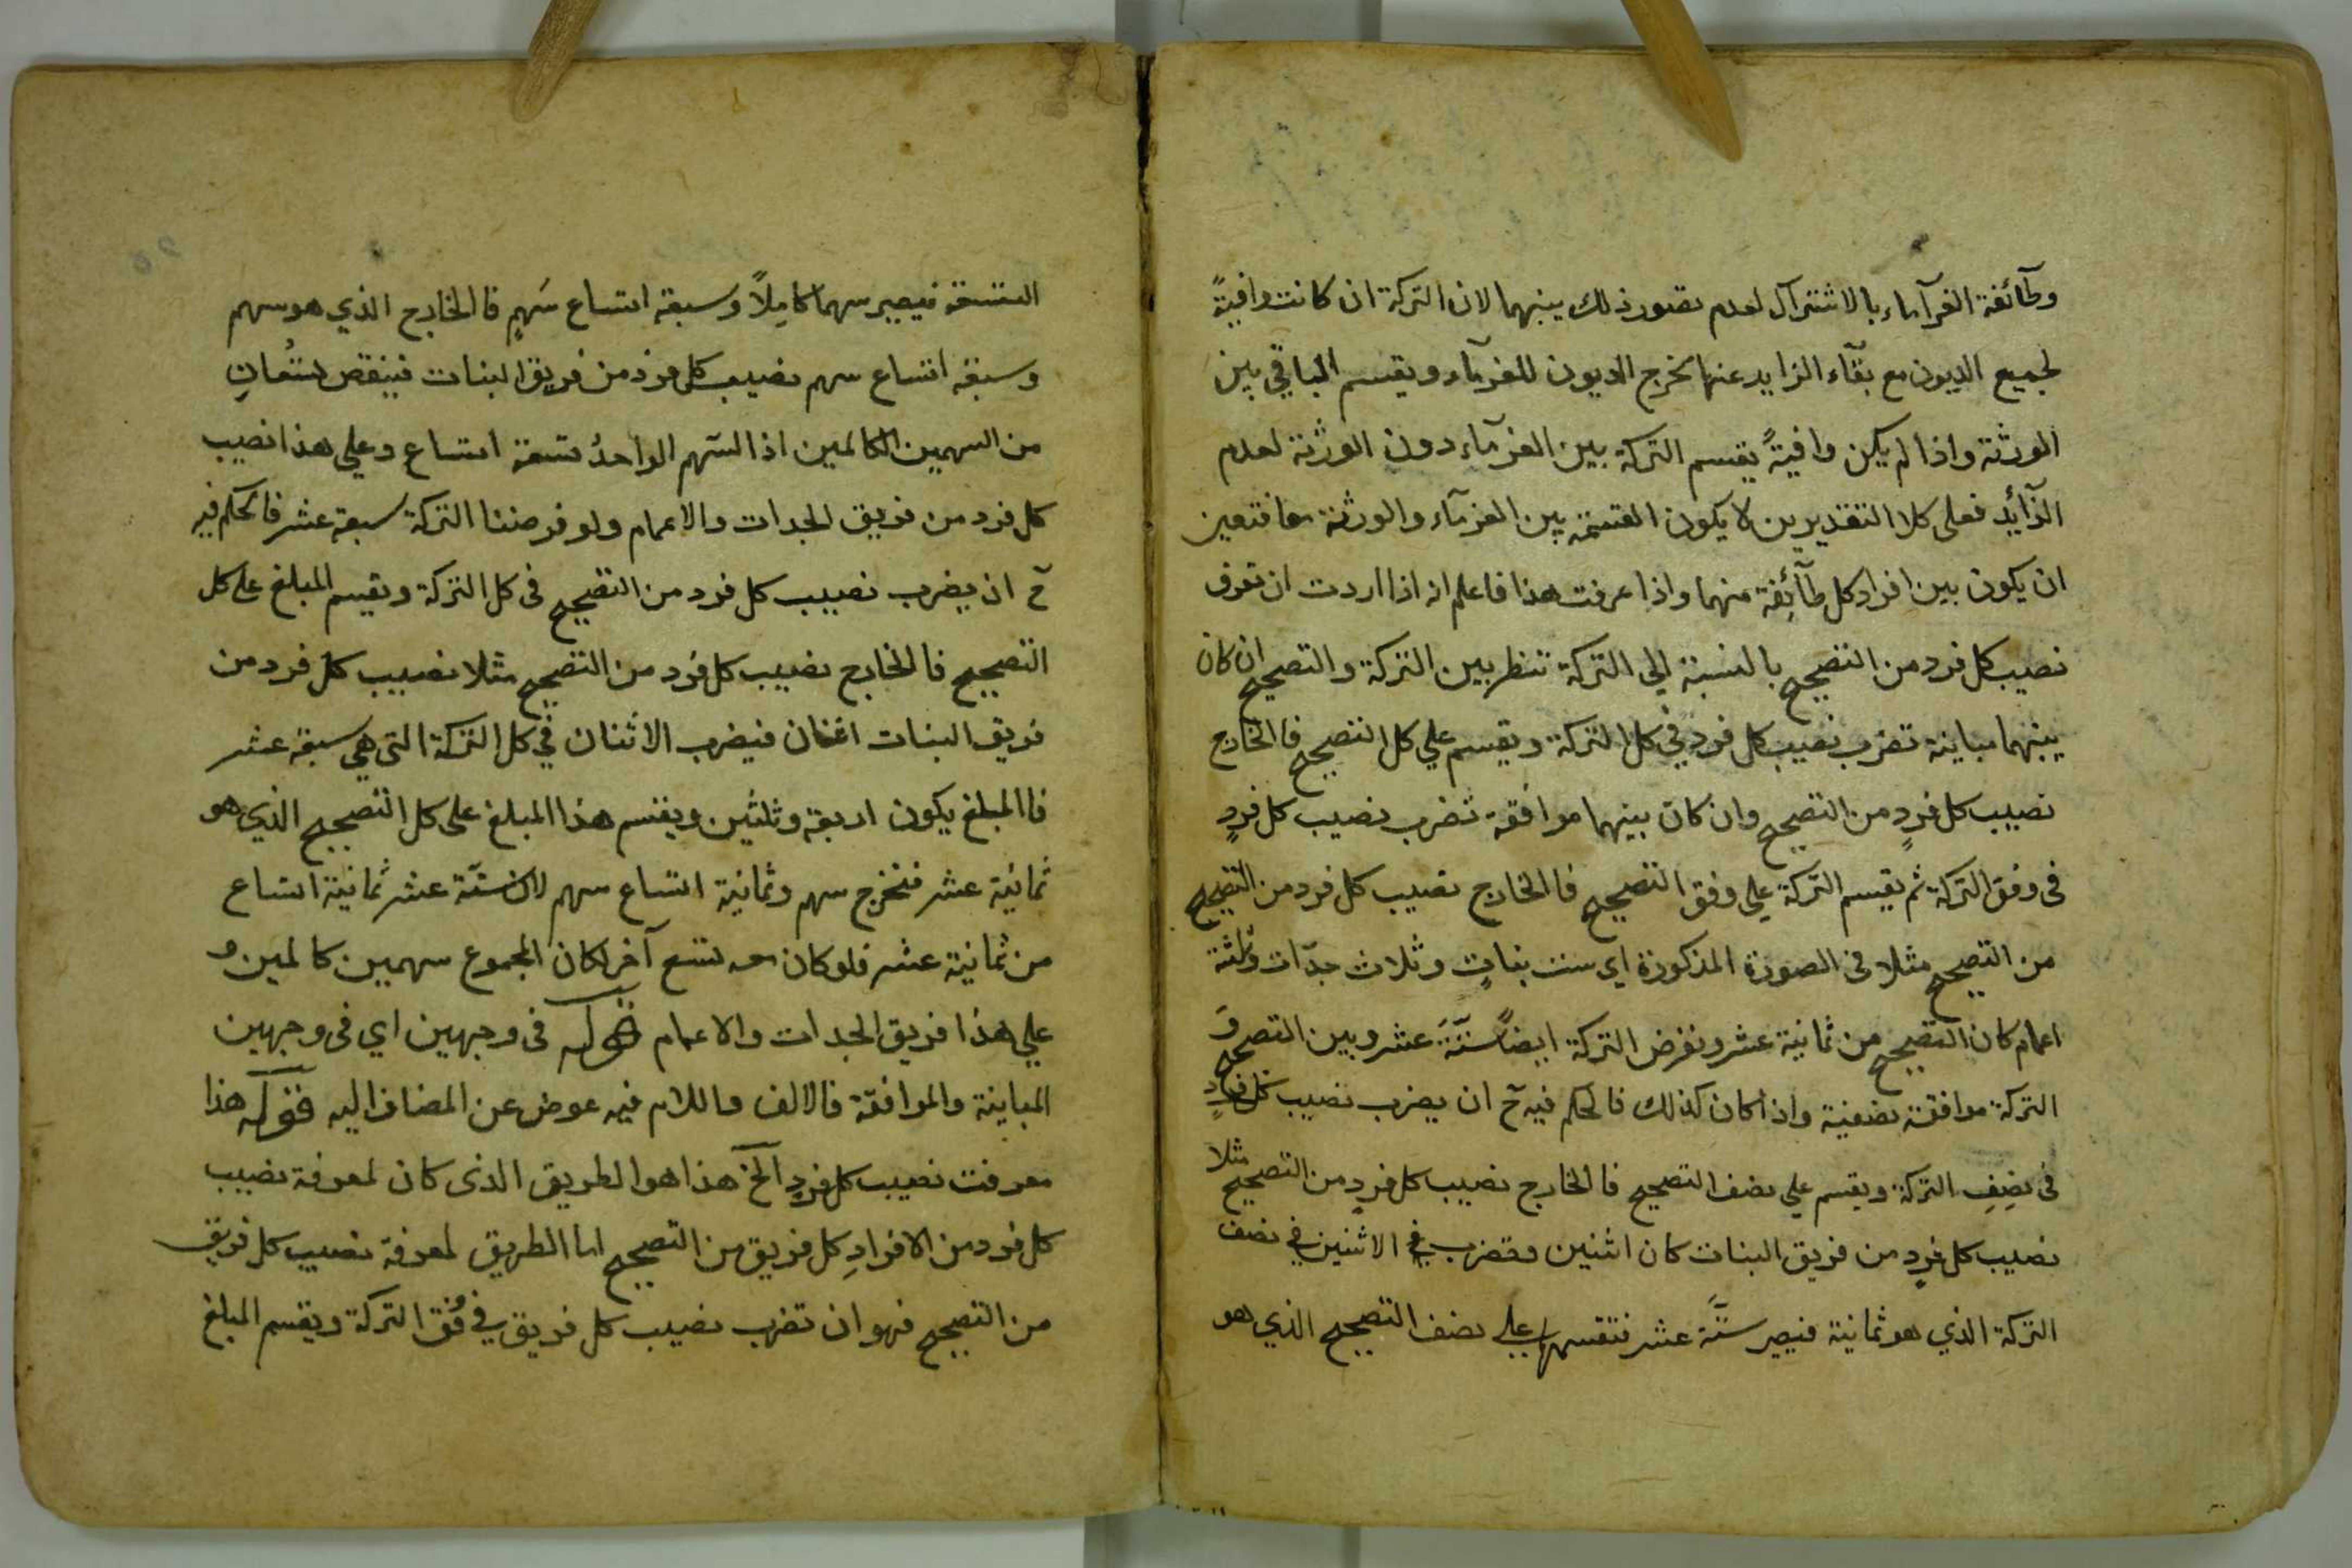 وطآئفة الغرآماء بالاشتراك لعدم تصور ذلك بينهما لان التركة ان كانت وافيةً
لجميع الديون مع بقآء الزايد عنها تخرج الديون للغرمآء ويقسم الباقي بين
الورثة واذا لم يكن وافيةً يقسم التركة بين الغرمآء دون الورثة لعدم
الزآئد فعلى كلا التقديرين لا يكون القسمة بين الغرمآء والورثة معا فتعين
ان يكون بين افراد كل طآئفة منهما واذا عرفت هذا فاعلم انه اذا اردت ان تعرف
نصيب كل فرد من التصحيح بالنسبة الي التركة تنظر بين التركة والتصحيح ان كان
بينهما مباينة تضرب نصيب كل فرد في كل التركة وتقسم علي كل التصحيح فالخارج
نصيب كل فردٍ من التصحيح وان كان بينهما موافقة تضرب نصيب كل فردٍ
فى وفق التركة ثم يقسم التركة علي وفق التصحيح فالخارج نصيب كل فرد من التصحيح
من التصحيح مثلا فى الصورة المذكورة اي ست بناتٍ وثلاث جدّات وثلثة
اعمام كان التصحيح من ثمانية عشر ونفرض التركة ايضاً ستَّةَ عشر وبين التصحيح وَ
التركة موافقة نصفية واذا كان كذلك فالحكم فيه حٓ ان يضرب نصيب كل فردٍ
فى نصِفِ التركة ويقسم علي نصف التصحيح فالخارج نصيب كل فردٍ من التصحيح مثلا
نصيب كل فردٍ من فريق البنات كان اثنين فتضرب في الاثنين في نصف
التركة الذي هو ثمانية فيصير ستَّة عشر فتقسمها علي نصف التصحيح الذي هو
التسعة فيصير سهما كامِلاً وسبعة اتساع سَهمٍ فالخارج الذي هو سهم
وسبعة اتساع سهم نصيب كل فرد من فريق البنات فينقص تسُعانِ
من السهمين الكاملين اذ السّهم الواحدُ تسعة اتساع وعلي هذا نصيب
كل فرد من فريق الجدات والاعمام ولو فرضنا التركة سبعة عشر فالحكم فيه
حٓ ان يضرب نصيب كل فرد من التصحيح فى كل التركة وتقسم المبلغ علي كل
التصحيح فالخارج نصيب كل فرد من التصحيح مثلا نصيب كل فرد من
فريق البنات اثنان فيضرب الاثنان في كل التركة التى هي سبعة عشر
فالمبلغ يكون اربعة وثلثين ويقسم هذا المبلغ على كل التصحيح الذي هو
ثمانية عشر فتخرج سهم وثمانية اتساع سهم لان ستّة عشر ثمانية اتساع
من ثمانية عشر فلو كان معه تسع آخر لكان المجموع سهمين كاملين و
علي هذا فريق الجدات والاعمام قوله فى وجهين اي فى وجهين
المباينة والموافقة فالالف واللام فيه عوض عن المضاف اليه فقوله هذا
معرفت نصيب كل فردٍ الخ هذا هو الطريق الذى كان لمعرفة نصيب
كل فرد من الافرادِ كل فريق من التصحيح اما الطريق لمعرفة نصيب كل فريق
من التصحيح فهو ان تضرب نصيب كل فريق في وُفق التركة ويقسم المبلغ